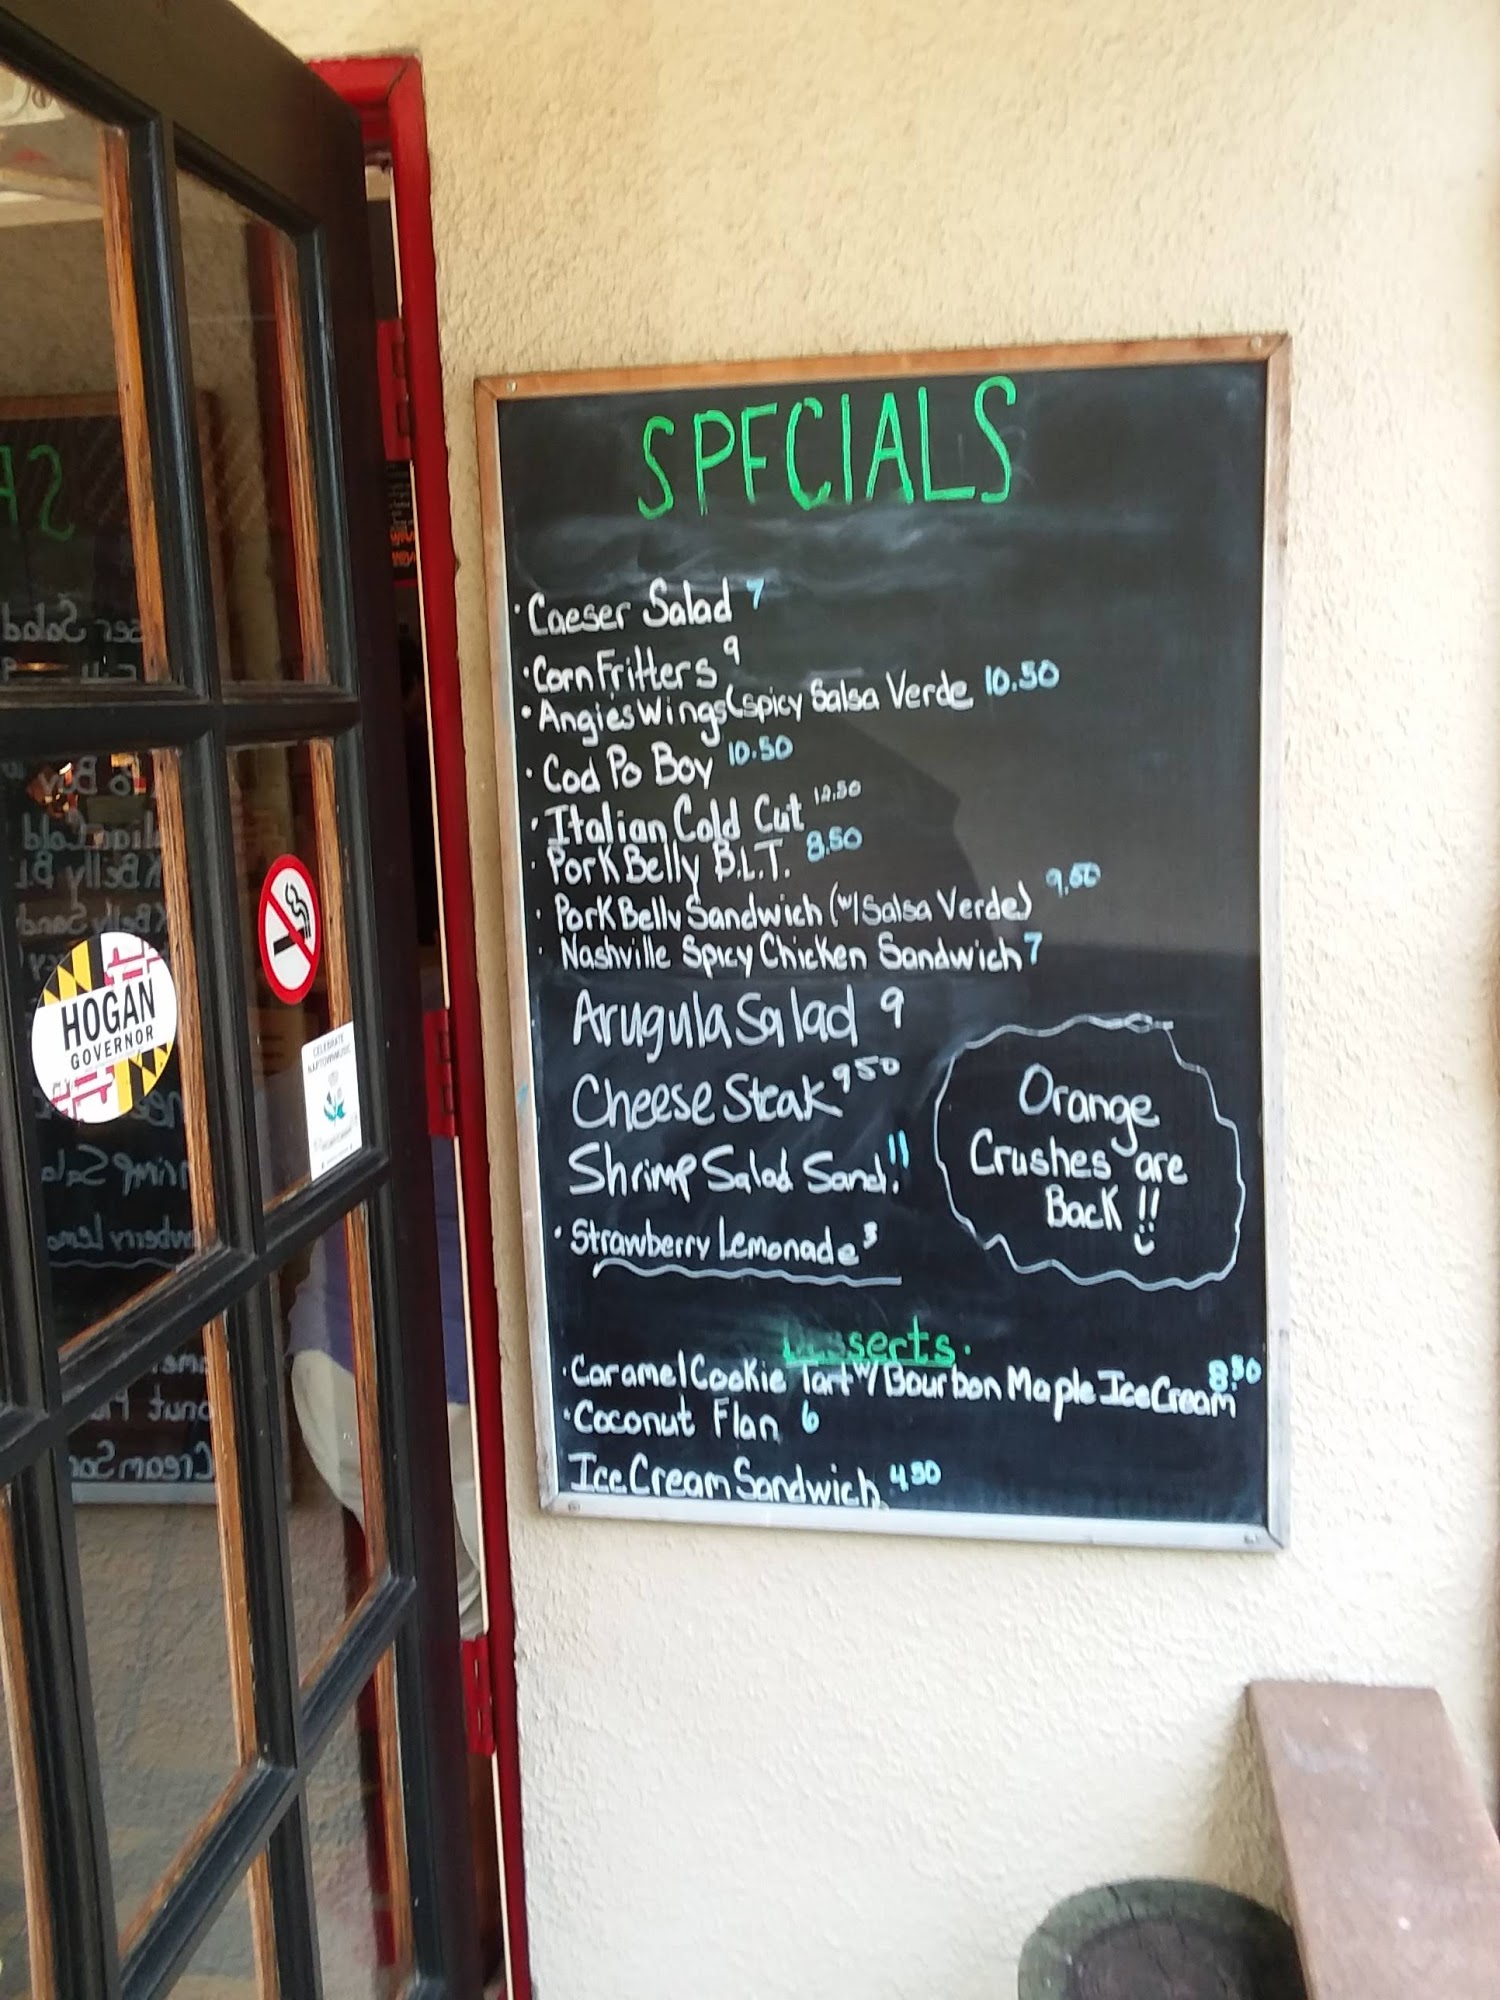 SPECIALS
· Caeser Salad 7
· Corn Fritters 9
· Angies Wings (spicy Salsa Verde 10.50
· Cod Po Boy 10.50
· Italian Cold Cut 12.50
· Pork Belly B.L.T. 8.50
· Pork Belly Sandwich (w/ Salsa Verde) 9.50
· Nashville Spicy Chicken Sandwich 7
Arugula Salad 9
Cheese Steak 950
Shrimp Salad Sand. 11
· Strawberry Lemonade 3
Orange
Crushes are
Back !!
Desserts.
· Caramel Cookie Tart w/ Bourbon Maple Ice Cream 8.50
· Coconut Flan 6
Ice Cream Sandwich 4.50
HOGAN
GOVERNOR
CELEBRATE